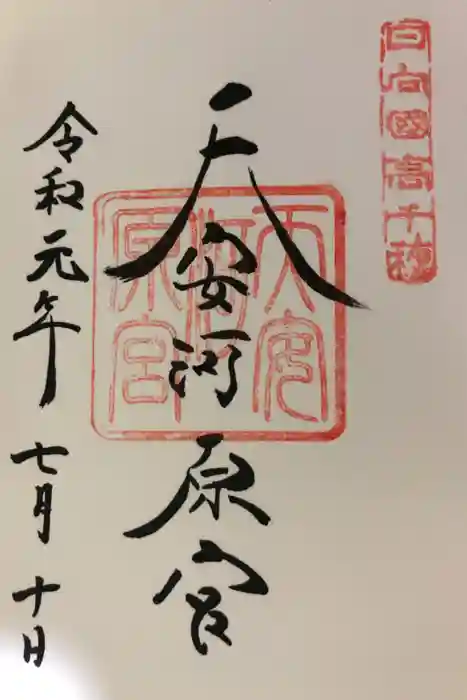 日向國高千穂
天安河原宮
天安
河
原宮
令和元年七月十日